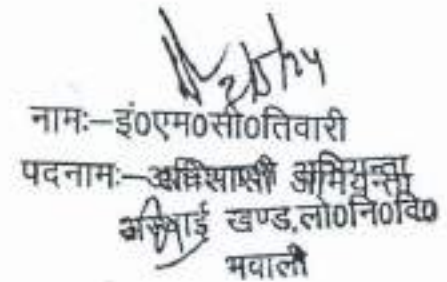 2/5/24
नामः–इं0एम0सी0तिवारी
पदनामः–अधिसाशी अभियन्ता
अस्थाई खण्ड,लो0नि0वि0
भवाली